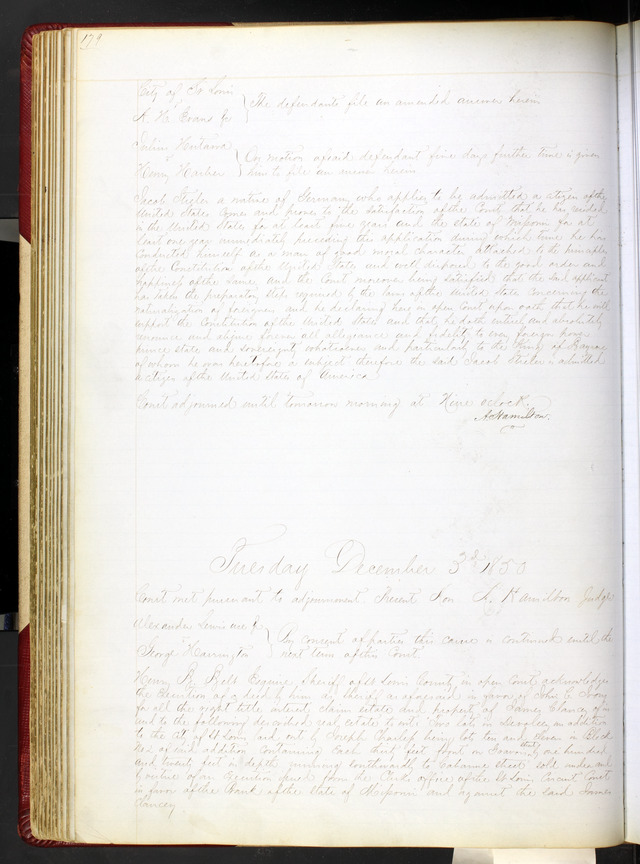 179
City of St Louis
vs
The defendants file an amended answer herein
A. H. Evans &c
Julius
vs
On motion of said defendant five days further time is given
Henry
him to file an answer herein
Jacob a native of Germany who applies to be admitted a citizen of the
United States comes and proves to the satisfaction of the Court that he has resided
in the United States for at least five years and the state of Missouri for at
least one year immediately preceding this application during which time he has
conducted himself as a man of good moral character attached to the principles
of the Constitution of the United States and well disposed to the good order and
happiness of the same and the Court moreover being satisfied that the said applicant
has taken the preparatory steps required by the laws of the United States concerning the
naturalization of foreigners and he declaring here in open Court upon oath that he will
support the Constitution of the United States and that he doth entirely and absolutely
renounce and abjure forever all allegiance and fidelity to every foreign power
prince state and sovereignty whatsoever and particularly to the King of Bavaria
of whom he was heretofore a subject therefore the said Jacob is admitted
a citizen of the United States of America
Court adjourned until tomorrow morning at Nine oclock.
A Hamilton.
Tuesday December 3d 1850
Court met pursuant to adjournment. Present Hon A. Hamilton Judge
Alexander Lewis use &
vs
By consent of parties this cause is continued until the
George Harrington
next term of this Court
Henry B. Belt Esquire Sheriff of St Louis County in open Court acknowledges
the execution of a deed by him as sheriff as aforesaid in favor of John C.
for all the right title interest claim estate and property of James Clancey of in
and to the following described real estate to wit: Two lots in an addition
to the City of St Louis laid out by Joseph Charless being lot ten and eleven in Block
No 2 of said addition containing each thirty feet front on by one hundred
and twenty feet in depth running southwardly to street sold under and
by virtue of an execution issued from the Clerks office of the St Louis Circuit Court
in favor of the Bank of the State of Missouri and against the said James
Clancey